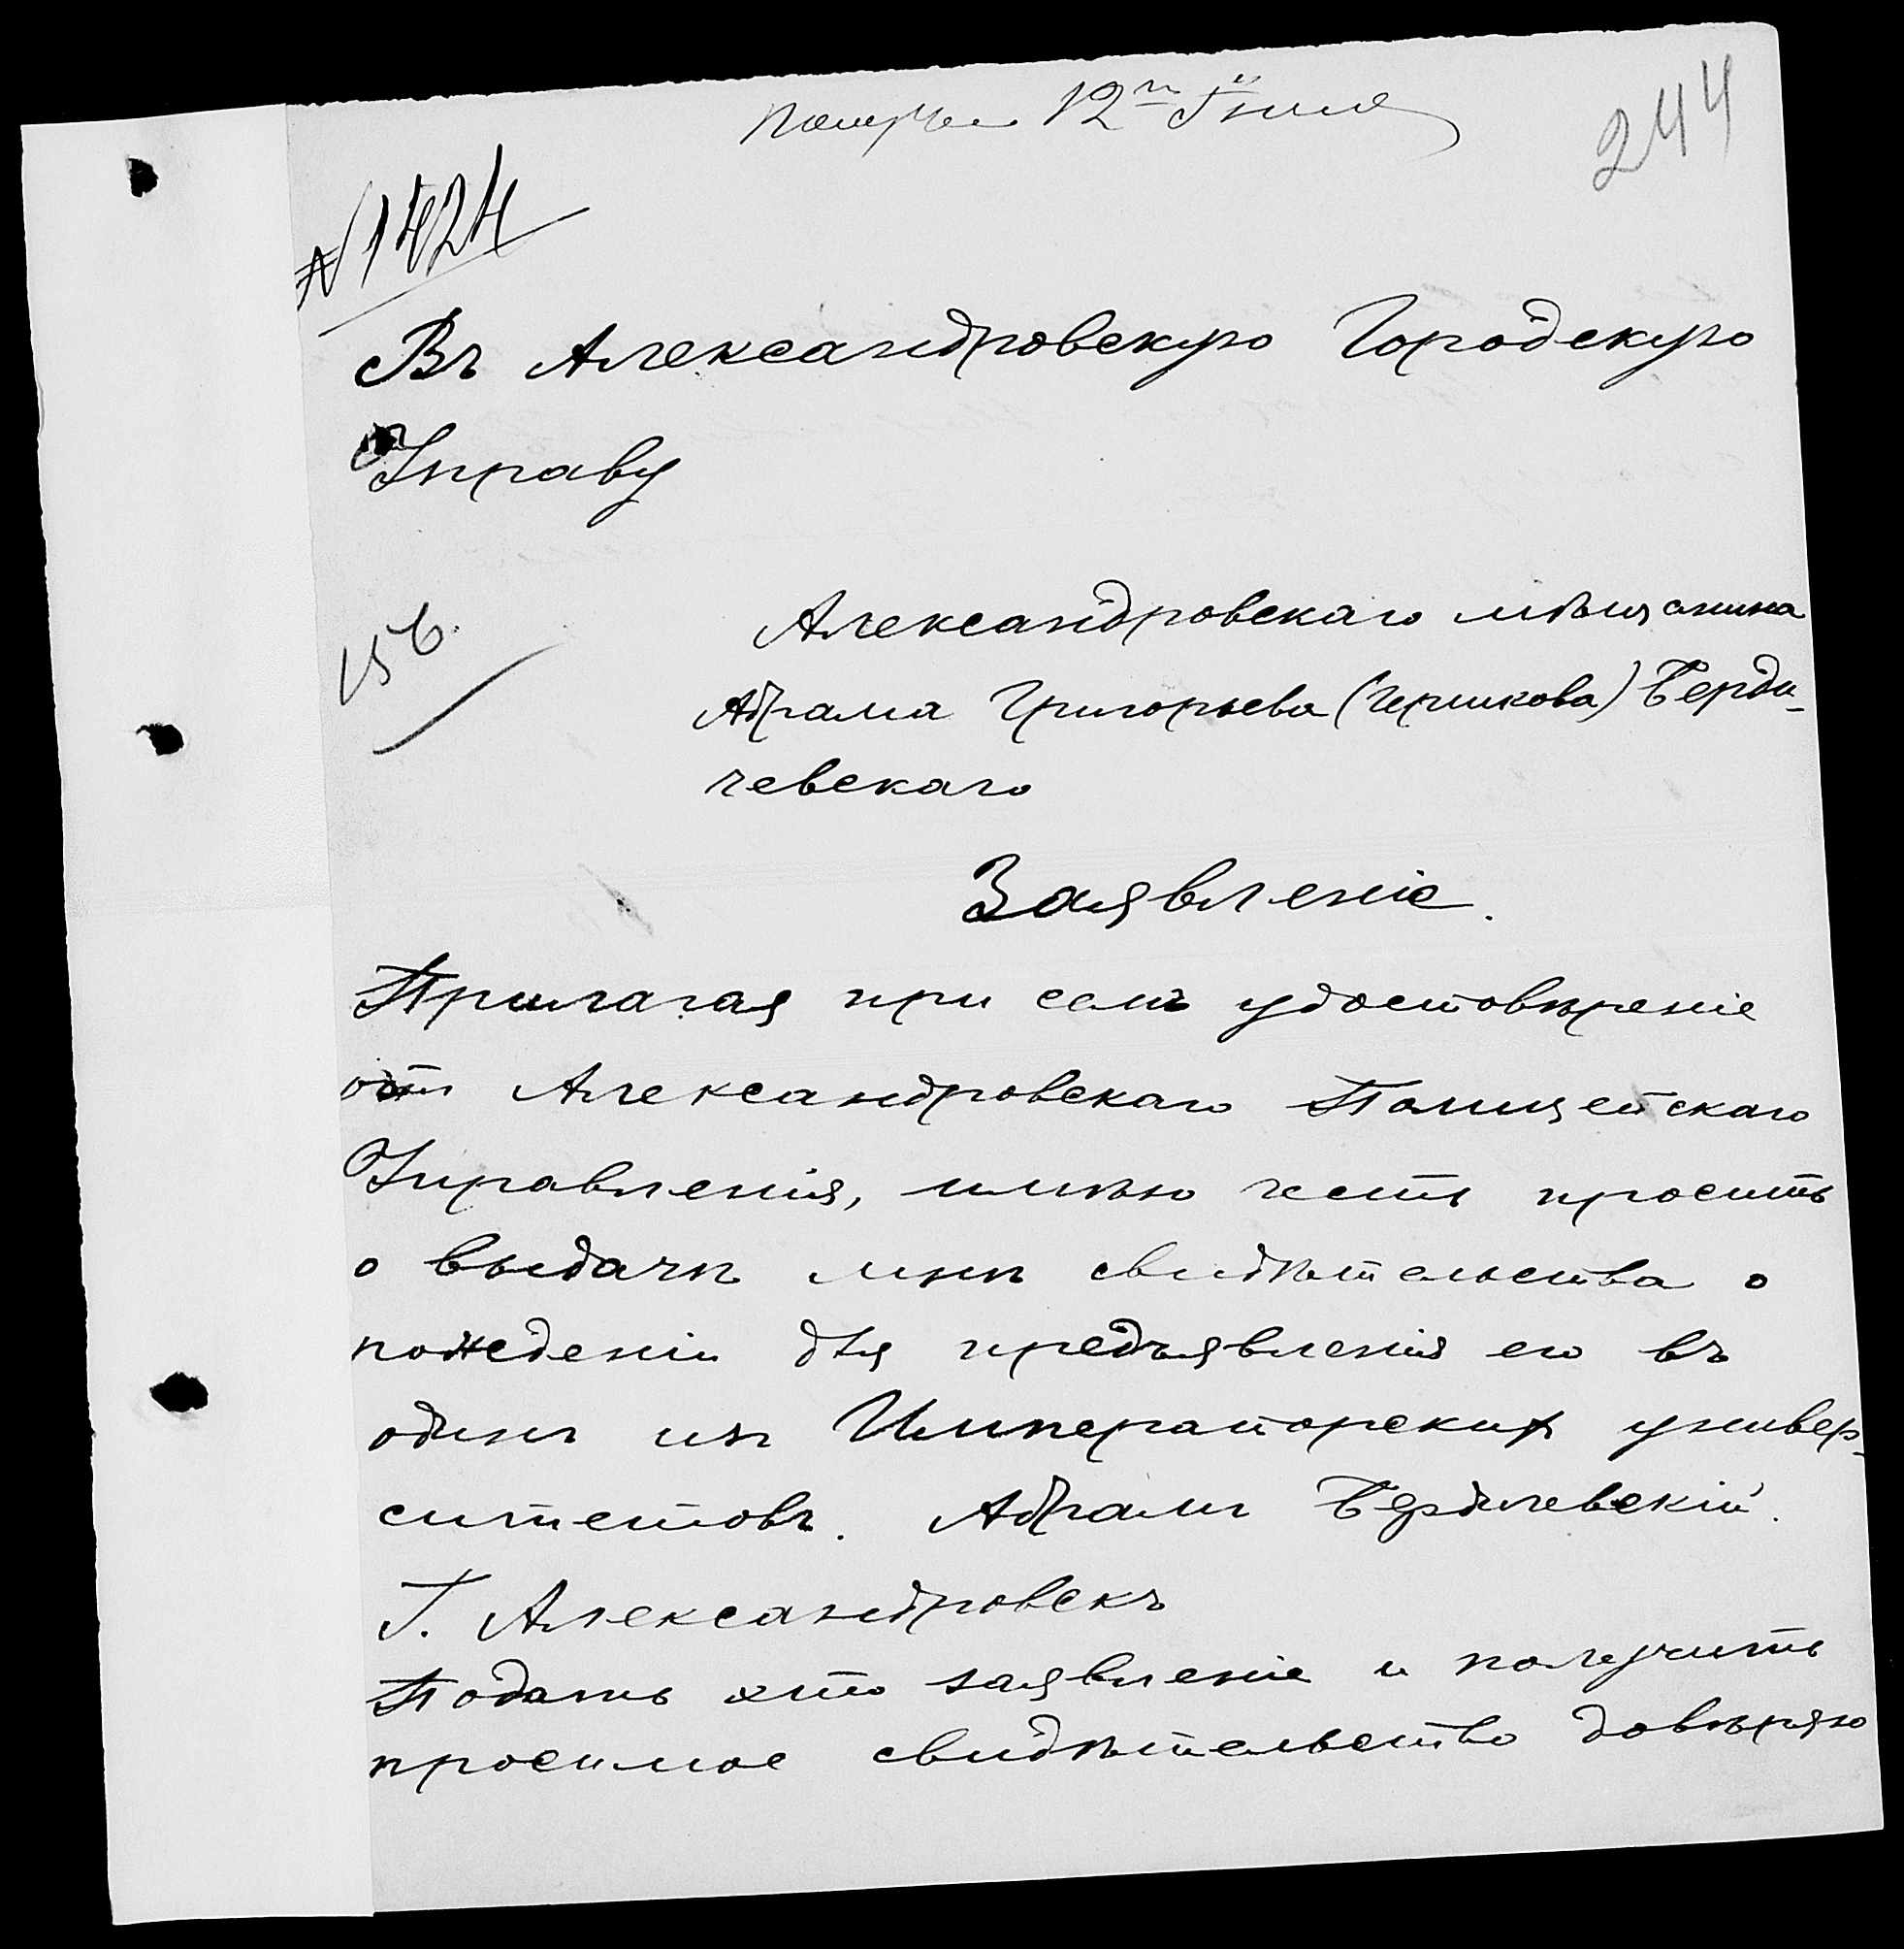 12го Іюля
244
№ 1424
Въ Александровскую Городскую
Управу
156.
Александровскаго мѣщанина
Абрама Григорьева (Гершкова) Берди-
чевскаго
Заявленіе.
Прилагая при семъ удостовѣреніе
отъ Александровскаго Полицейскаго
Управленія, имѣю честь просить
о выдачѣ мнѣ свидѣтельства о
поведеніи для предъявленія его въ
одинъ изъ Императорских универ-
ситетовъ. Абрамъ Бердичевскій.
Г. Александровскъ
Подать это заявленіе и получить
просимое свидѣтельство довѣряю